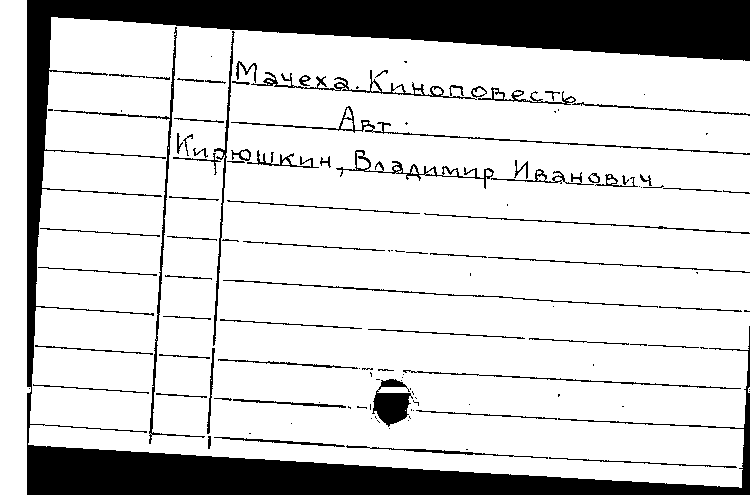 Мачеха. Киноповесть.
Авт:
Кирюшкин, Владимир Иванович.